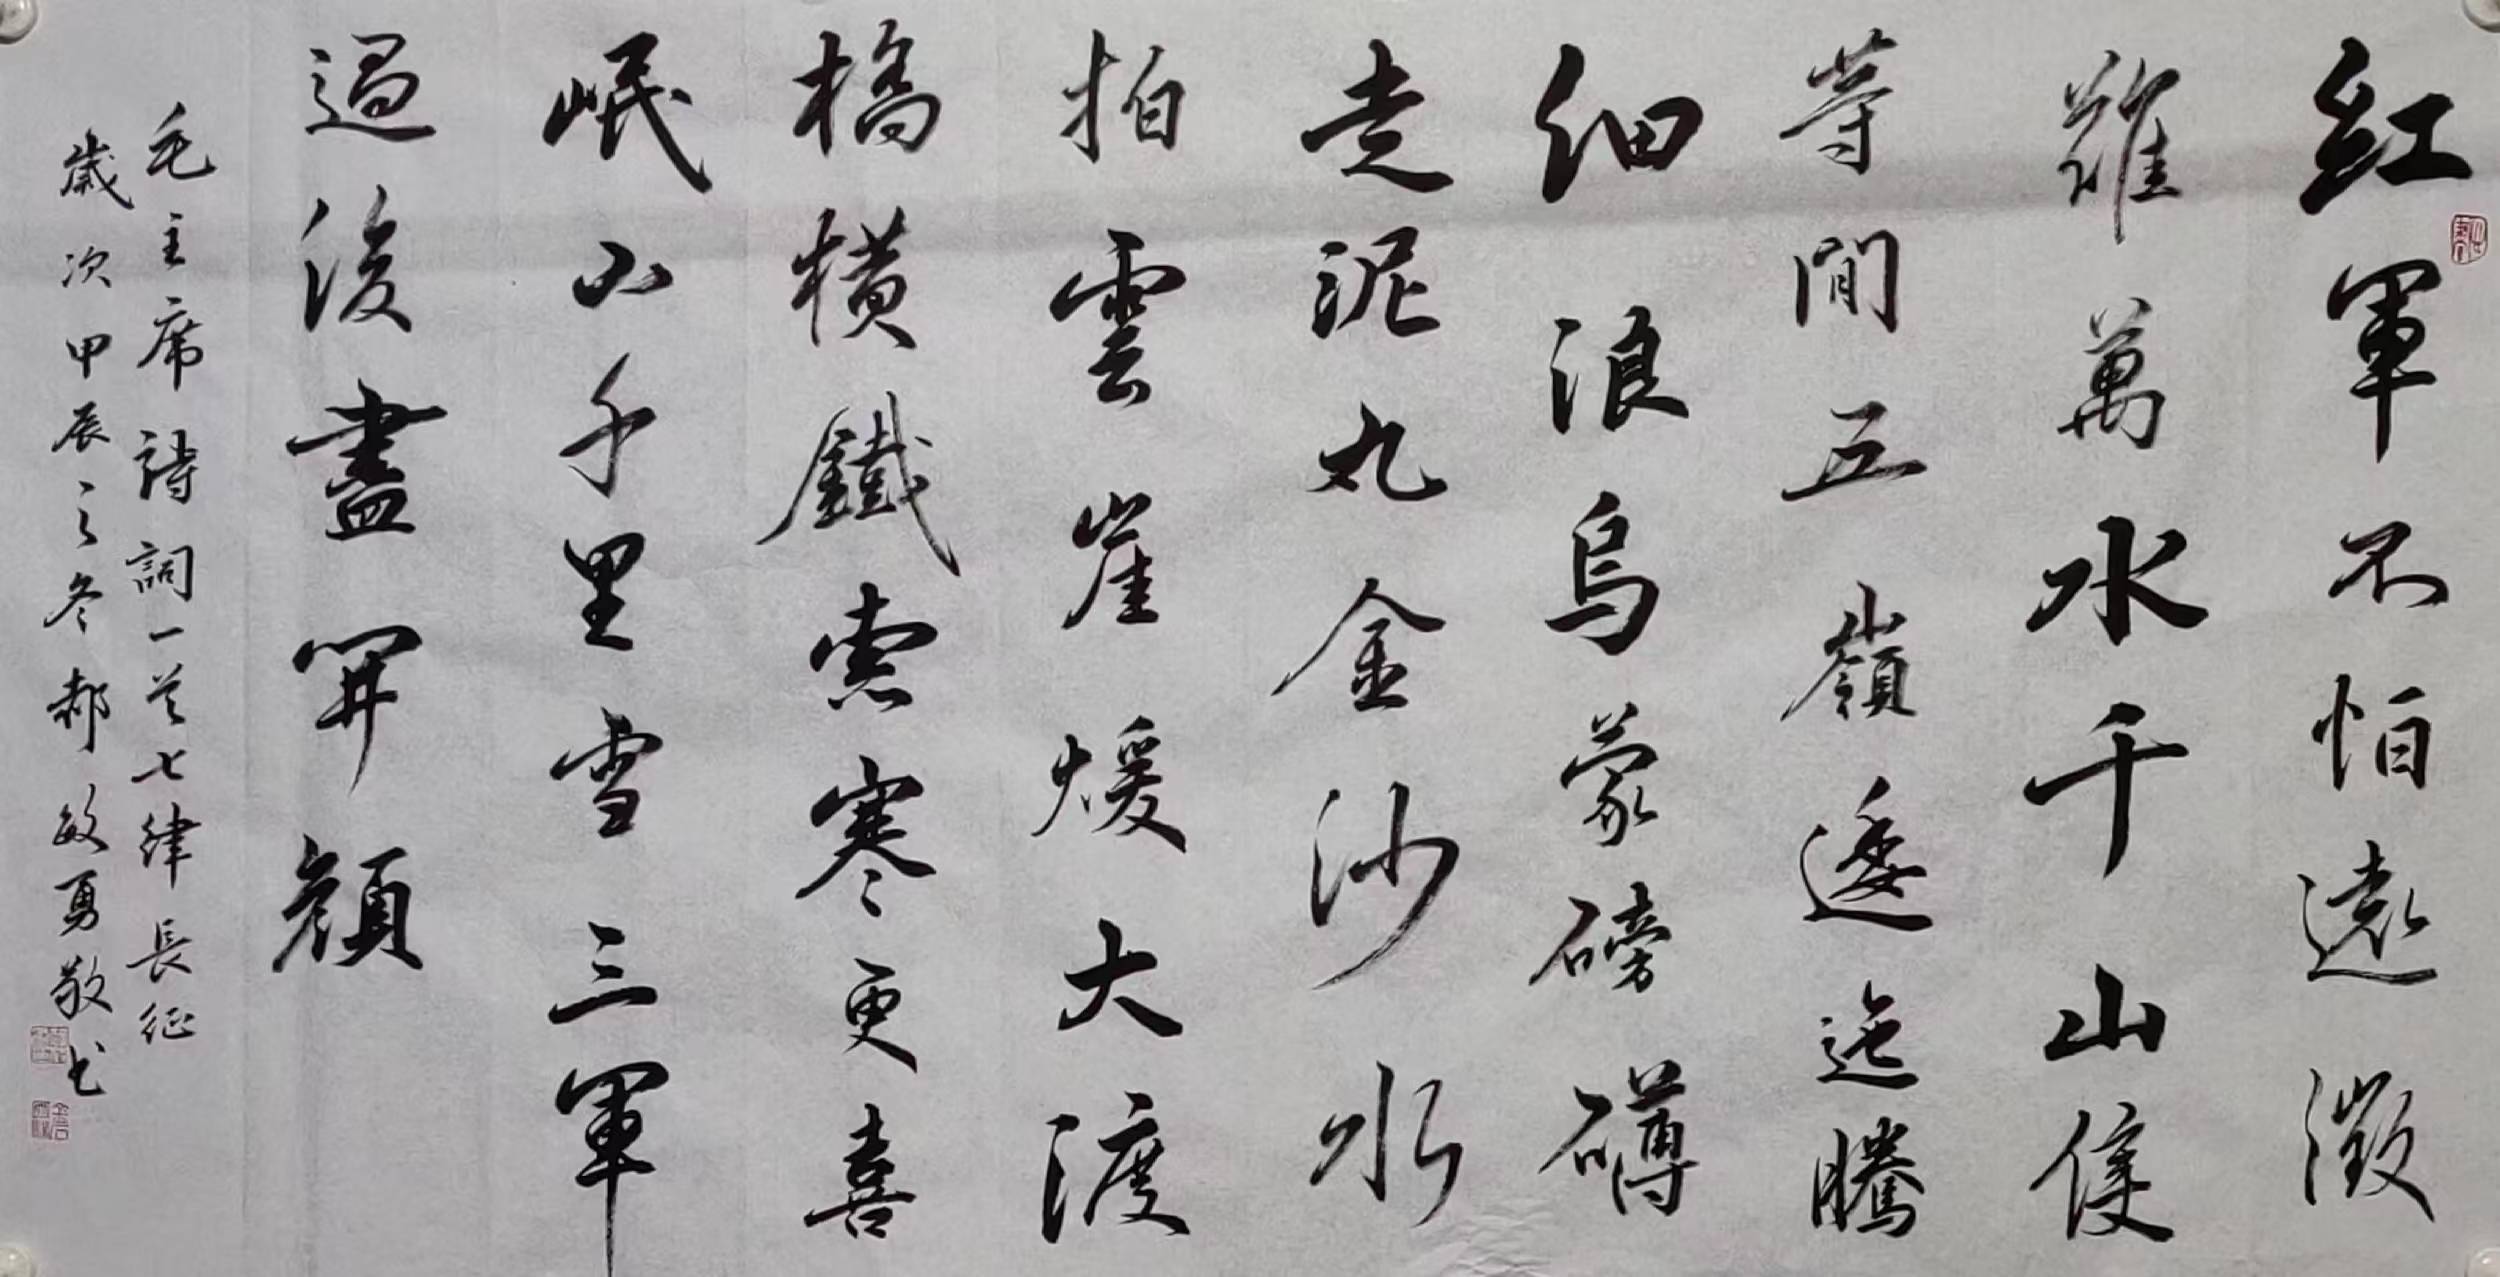 紅軍不怕遠徵
難萬水千山隻
等閒五嶺逶迤騰
細浪烏蒙磅礴
走泥丸金沙水
拍雲崖煖大渡
橋橫鐵索寒更喜
岷山千里雪三軍
過後盡開顏
毛主席詩詞一首七律長征
歲次甲辰之冬郝敏勇敬书